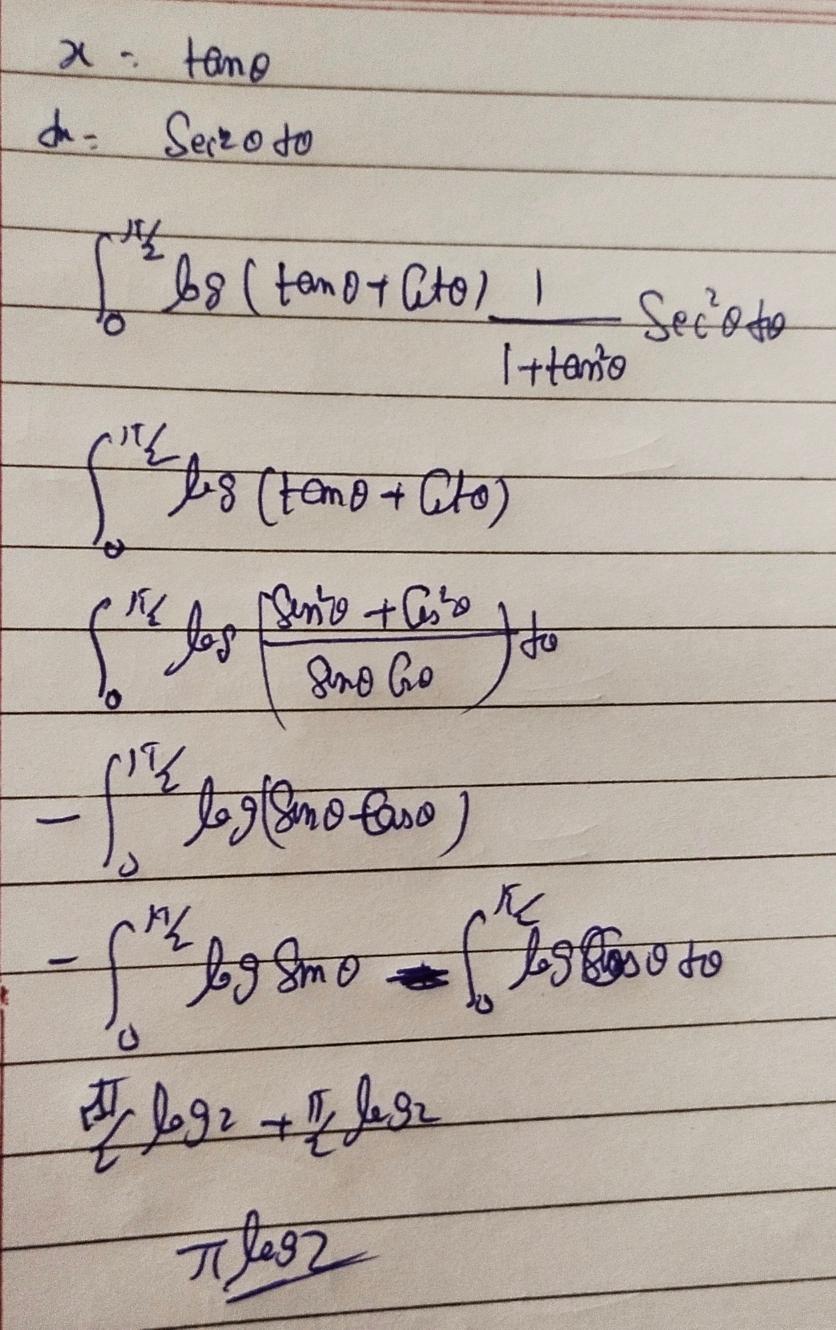 x = tanθ
dx = Sec²θ dθ
∫₀^π/2 log (tanθ + Cotθ) 1/(1+tan²θ) Sec²θ dθ
∫₀^π/2 log (tanθ + Cotθ)
∫₀^π/2 log ((Sin²θ + Cos²θ)/(Sinθ Cosθ)) dθ
- ∫₀^π/2 log(Sinθ Cosθ)
- ∫₀^π/2 log Sinθ - ∫₀^π/2 log Cosθ dθ
π/2 log2 + π/2 log2
π log2